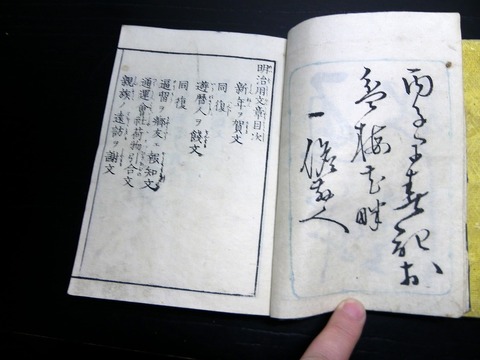 丙子春記於
梅花畔
一人
明治用文章目次
新年ヲ賀文
同復
遊暦人ヲ餞文
同復
習ヲ友エ報知文
通運會社荷物合文
親族ノ遠訪ヲ謝文